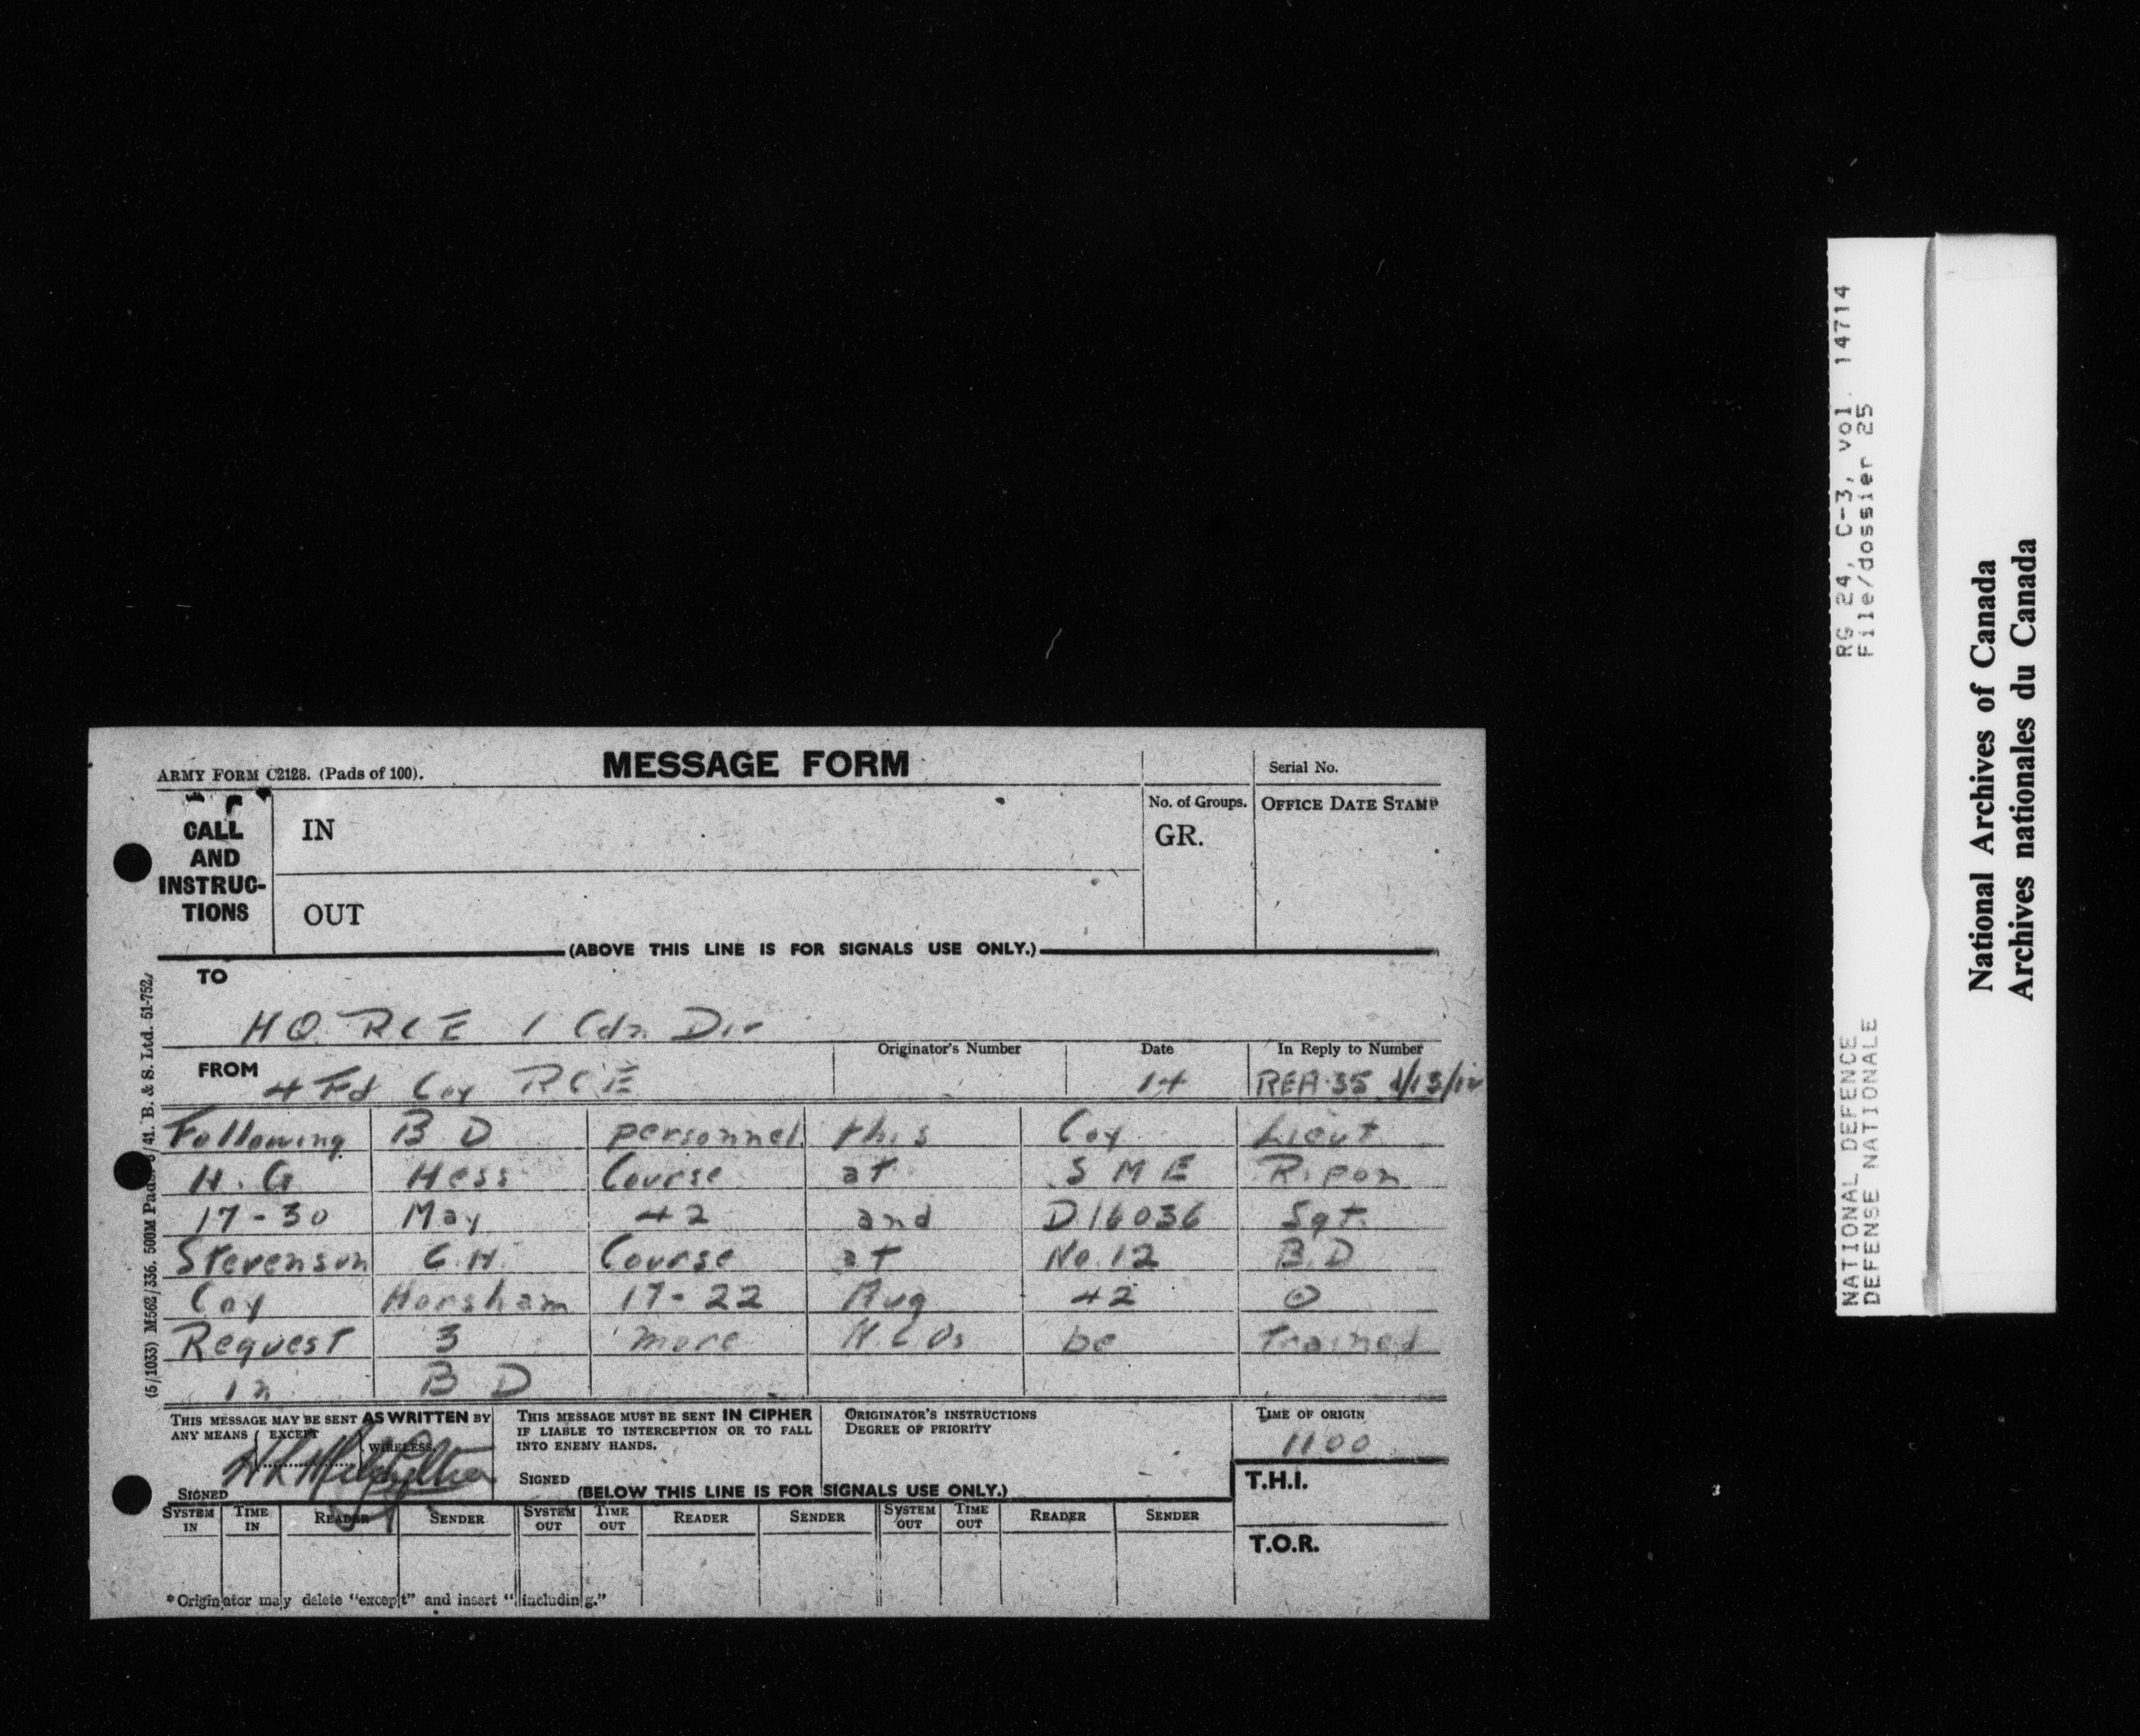 ARMY FORM C2128. (Pads of 100).
MESSAGE FORM
Serial No.
CALL AND INSTRUC-TIONS
IN
OUT
No. of Groups.
GR.
OFFICE DATE STAMP
(ABOVE THIS LINE IS FOR SIGNALS USE ONLY.)
TO
HQ RCE 1 Cdn Div
FROM
4 Fd Coy RCE
Originator's Number
Date
14
In Reply to Number
REA 35
Following B D personnel this Coy Lieut
H. G Hess Course at S M E Ripon
17-30 May 42 and D16036 Sgt.
Stevenson C.H. Course at No. 12 B.D
Coy Horsham 17-22 Aug 42 O
Request 3 more N.C Os be Trained
in B D
THIS MESSAGE MAY BE SENT AS WRITTEN BY
ANY MEANS EXCEPT
WIRELESS.
SIGNED
THIS MESSAGE MUST BE SENT IN CIPHER
IF LIABLE TO INTERCEPTION OR TO FALL
INTO ENEMY HANDS.
SIGNED
ORIGINATOR'S INSTRUCTIONS
DEGREE OF PRIORITY
TIME OF ORIGIN
1100
T.H.I.
T.O.R.
(BELOW THIS LINE IS FOR SIGNALS USE ONLY.)
SYSTEM IN TIME IN READER SENDER SYSTEM OUT TIME OUT READER SENDER SYSTEM OUT TIME OUT READER SENDER
*Originator may delete "except" and insert "including."
(5/1033) M562/336. 500M Pads. 41. B. & S. Ltd. 51-752.
RG 24, C-3, vol. 14714
File/dossier 25
NATIONAL DEFENCE
DEFENSE NATIONALE
National Archives of Canada
Archives nationales du Canada